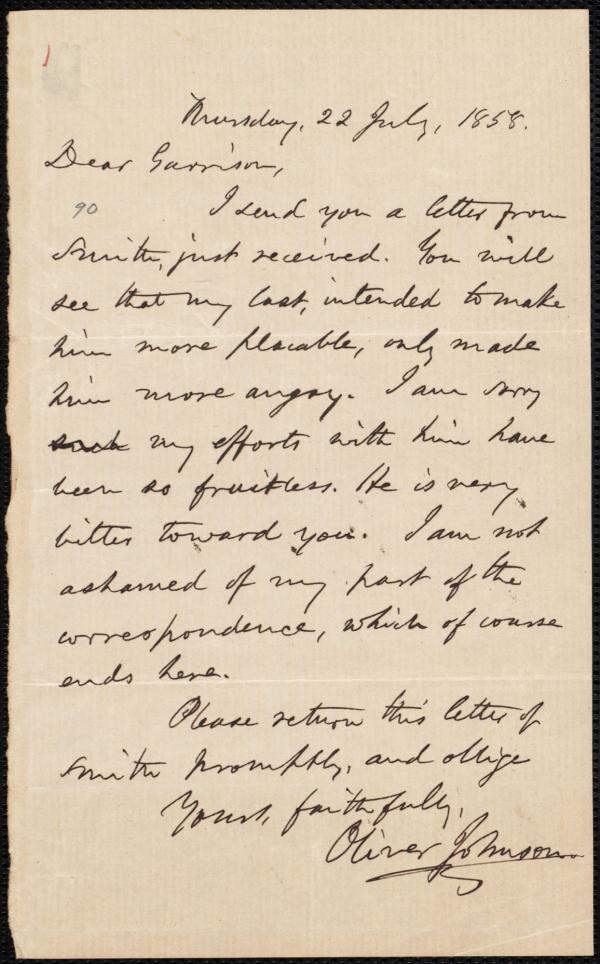 Thursday, 22 July, 1858.
Dear Garrison,
90
I send you a letter from
Smith, just received. You will
see that my last, intended to make
him more placable, only made
him more angry. I am sorry
such my efforts with him have
been so fruitless. He is very
bitter toward you. I am not
ashamed of my part of the
correspondence, which of course
ends here.
Please return this letter of
Smith promptly, and oblige
Yours, faithfully,
Oliver Johnson